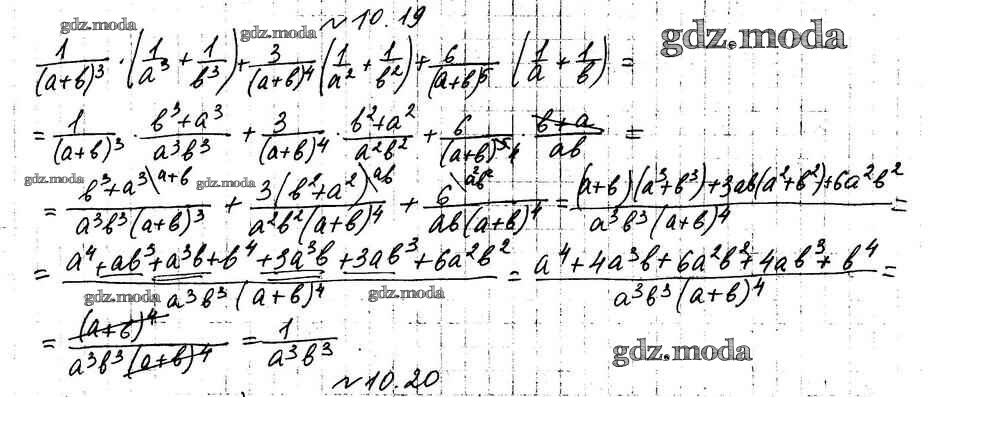 №10.19
gdz.moda gdz.moda gdz.moda
1/(a+b)³ · (1/a³ + 1/b³) + 3/(a+b)⁴ (1/a² + 1/b²) + 6/(a+b)⁵ · (1/a + 1/b) =
= 1/(a+b)³ · (b³+a³)/(a³b³) + 3/(a+b)⁴ · (b²+a²)/(a²b²) + 6/(a+b)⁵ ⁴ · (b+a)/(ab) =
gdz.moda gdz.moda
= (b³+a³ \a+b)/(a³b³(a+b)³) + (3(b²+a²) \ab)/(a²b²(a+b)⁴) + (6 \a²b²)/(ab(a+b)⁴) = ((a+b)(a³+b³)+3ab(a²+b²)+6a²b²)/(a³b³(a+b)⁴) =
= (a⁴+ab³+a³b+b⁴+3a³b+3ab³+6a²b²)/(a³b³(a+b)⁴) = (a⁴+4a³b+6a²b²+4ab³+b⁴)/(a³b³(a+b)⁴) =
gdz.moda gdz.moda
= (a+b)⁴/(a³b³(a+b)⁴) = 1/(a³b³)
gdz.moda
№10.20